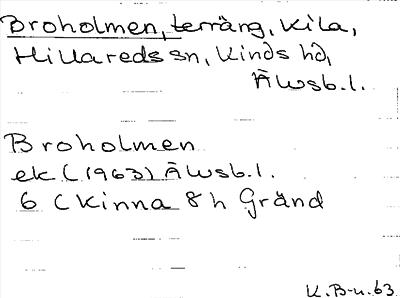 Broholmen, terräng, Kila,
Hillareds sn, Kinds hd,
Älvsb. l.
Broholmen
ek (1963) Älvsb. l.
6 C Kinna 8h Gränd
K.B-n.63